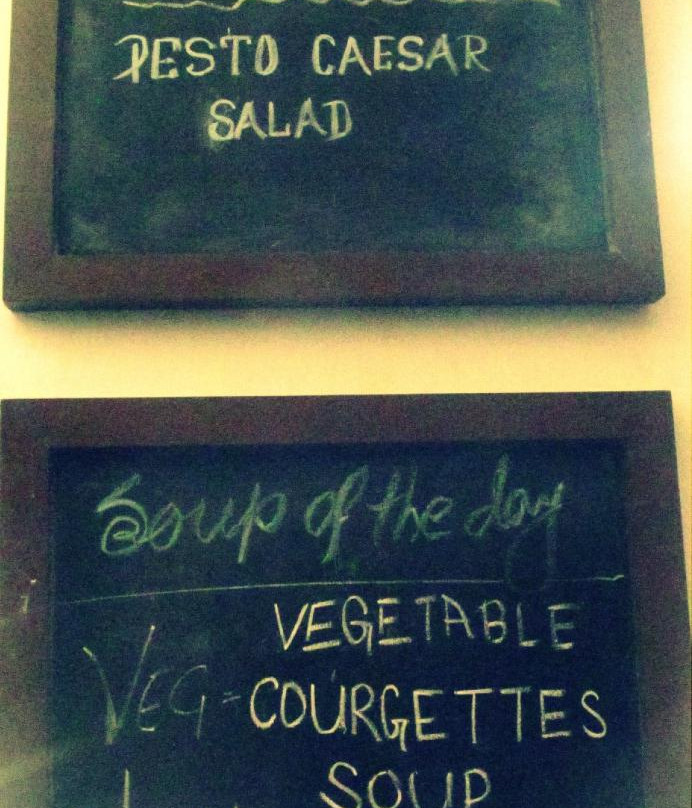 PESTO CAESAR
SALAD
Soup of the day
VEGETABLE
VEG = COURGETTES
SOUP